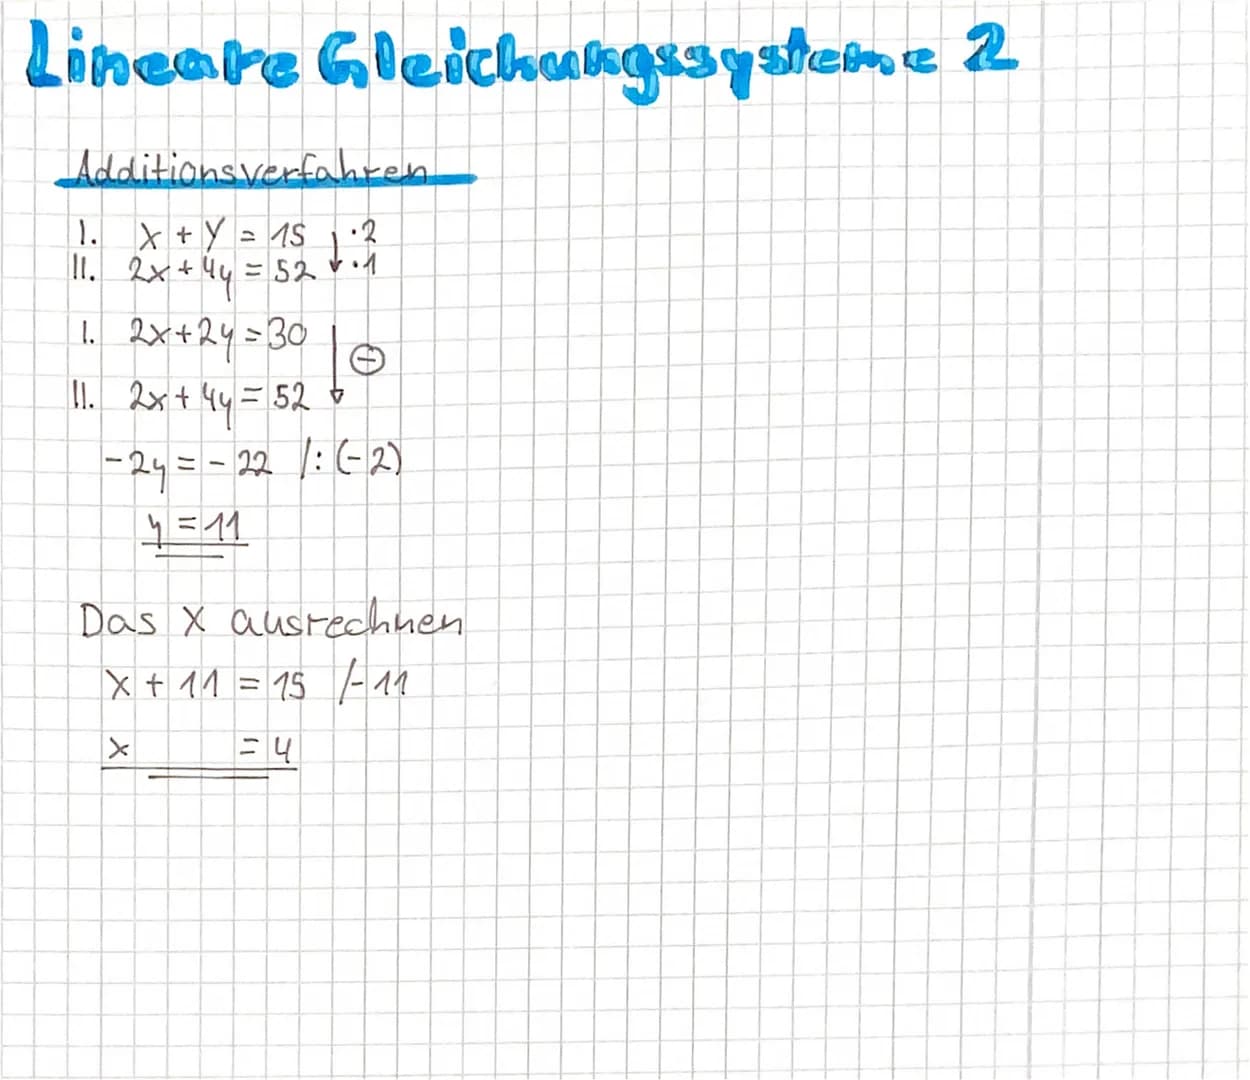 Lineare Gleichungssysteme 2
Additionsverfahren
I. x + y = 15 | ·2
II. 2x + 4y = 52 ↓ ·1
I. 2x + 2y = 30
II. 2x + 4y = 52 ↓ ⊖
-2y = -22 /: (-2)
y = 11
Das x ausrechnen
x + 11 = 15 /-11
x = 4